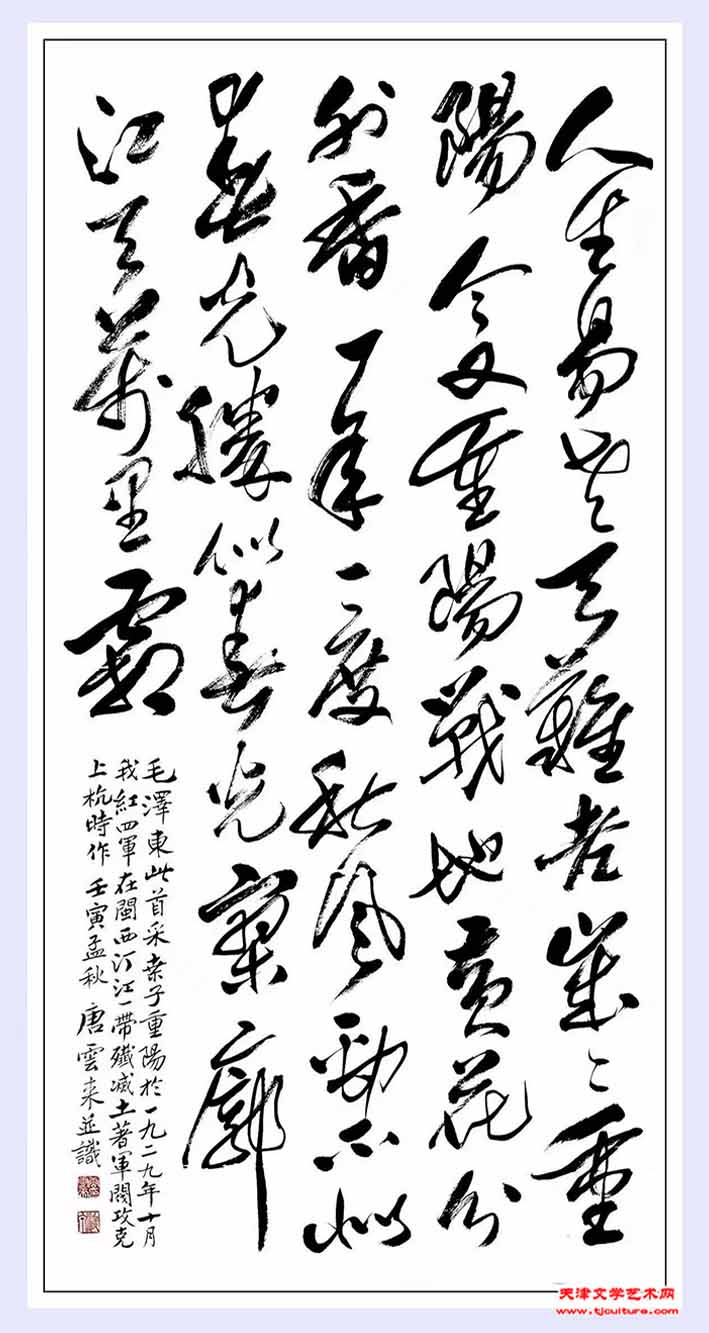 人生易老天難老歲々重
陽今又重陽戰地黄花分
外香一年一度秋風勁不似
春光勝似春光寥廓
江天萬里霜
毛澤東此首采桑子重陽於一九二九年十月
我紅四軍在閩西汀江一帶殲滅土著軍閥攻克
上杭時作 壬寅孟秋 唐雲来並識
天津文学艺术网
www.tjculture.com